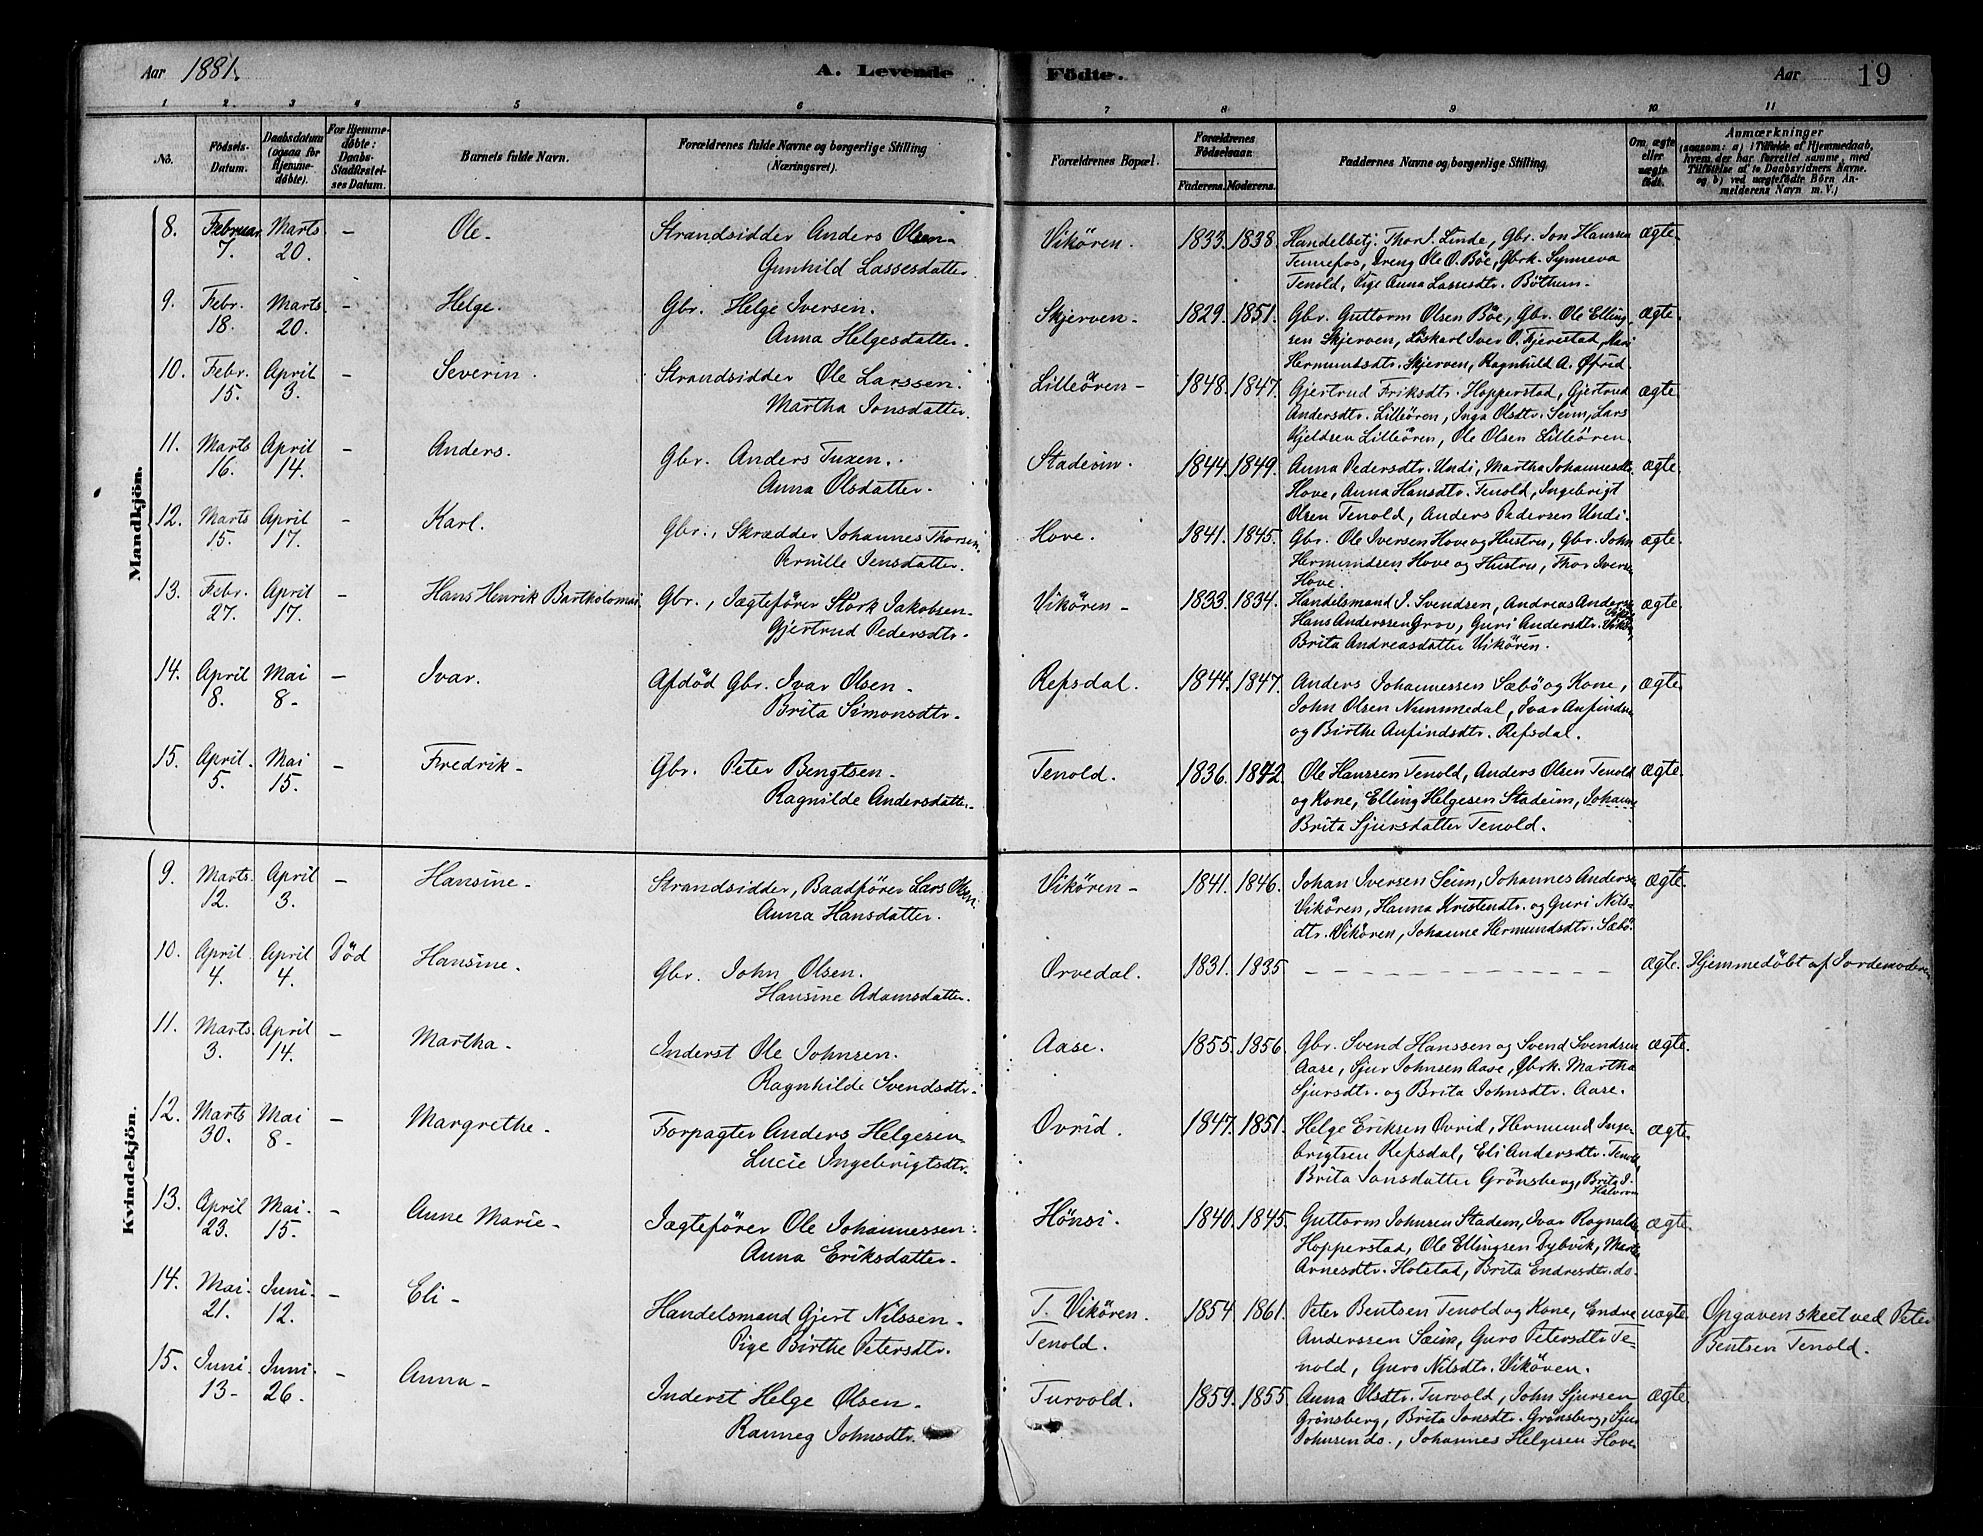 Aar 1881. A. Levende Födte. Aar 19
1 2 3 4 5 6 7 8 9 10 11
No. Födsels-Datum. Daabsdatum (ogsaa for Hjemme-döbte). For Hjemme-döbte: Daabs-Stadfæstel-ses Datum. Barnets fulde Navn. Forældrenes fulde Navne og borgerlige Stilling (Næringsvei). Forældrenes Bopæl. Forældrenes Födselsaar. Faderens. Moderens. Faddernes Navne og borgerlige Stilling. Om ægte eller uægte födt. Anmærkninger (saasom: a) i Tilfælde af Hjemmedaab, hvem der har forrettet samme, med Tilföielse af to Daabsvidners Navne, og b) ved uægtefödte Börn Anmelderens Navn m. V.)
Mandkjön.
8. Februar 7. Marts 20. - Ole. Strandsidder Anders Olsen- Vikören. 1833. 1838. Handelbetj. Thor J. Linde, Gbr. Jon Hanssen ægte.
Gunhild Lassesdatter. Tennefos, Dreng Ole O. Böe, Gbrk. Synneva
Tenold, Pige Anna Lassesdtr. Böthun.
9. Febr. 18. Marts 20. - Helge. Gbr. Helge Iversen. Skjerven- 1829. 1851. Gbr. Guttorm Olsen Böe, Gbr. Ole Elling- ægte.
Anna Helgesdatter. sen Skjerven, Löskarl Iver O. Fjerestad,
Hermundsdtr. Skjerven, Ragnhild A. Öfrid.
10. Febr. 15. April 3. - Severin. Strandsidder Ole Larssen. Lilleören- 1848. 1847. Gjertrud Eriksdtr. Hopperstad, Gjertrud ægte.
Martha Jonsdatter. Andersdtr. Lilleören, Inga Olsdtr. Seim, Lars
Kjeldsen Lilleören, Ole Olsen Lilleören.
11. Marts 16. April 14. - Anders. Gbr. Anders Tuxen. Stadeim. 1844. 1849. Anna Pedersdtr. Undi, Martha Johannesdtr. ægte.
Anna Olsdatter. Hove, Anna Hansdtr. Tenold, Ingebrigt
Olsen Tenold, Anders Pedersen Undi.
12. Marts 15. April 17. - Karl. Gbr., Skrædder Johannes Thorsen. Hove. 1841. 1845. Gbr. Ole Iversen Hove og Hustru, Gbr. John ægte.
Pernille Jensdatter. Hermundsen Hove og Hustru, Thor Iversen
Hove.
13. Febr. 27. April 17. - Hans Henrik Bartholomæi. Gbr., Jægtefører Störk Jakobsen- Vikören- 1833. 1834. Handelsmand J. Svendsen, Andreas Anders. ægte.
Gjertrud Pedersdtr. Hans Anderssen Grov, Guri Andersdtr.
Brita Andreasdatter Vikören.
14. April 8. Mai 8- - Ivar. Afdød Gbr. Ivar Olsen- Refsdal. 1844. 1847. Anders Johannessen Sæbö og Kone, ægte.
Brita Simonsdtr. John Olsen Nummedal, Ivar Anfindsen
og Birthe Anfindsdtr. Refsdal.
15. April 5. Mai 15. - Fredrik- Gbr. Peter Bengtsen- Tenold. 1836. 1842. Ole Hanssen Tenold, Anders Olsen Tenold ægte.
Ragnilde Andersdatter. og Kone, Elling Helgesen Stadeim, Johanne
Brita Sjursdatter Tenold.
Kvindekjön.
9. Marts 12. April 3. - Hansine- Strandsidder, Baadfører Lars Olsen. Vikören- 1841. 1846. Johan Iversen Seim, Johannes Anders. ægte.
Anna Hansdatter. Vikören, Hanna Kristendtr. og Guri Nils-
dtr. Vikören, Johanne Hermundsdtr. Sæbö.
10. April 4. April 4. Död Hansine. Gbr. John Olsen. Orvedal. 1831. 1835 - - - - - - - ægte. Hjemmedöbt af Jordemoderen
Hansine Adamsdatter.
11. Marts 3. April 14. - Martha. Inderst Ole Johnsen. Aase. 1855. 1856. Gbr. Svend Hanssen og Svend Svendsen ægte.
Ragnhilde Svendsdtr. Aase, Sjur Johnsen Aase, Gbrk. Martha
Sjursdtr. og Brita Johnsdtr. Aase.
12. Marts 30. Mai 8- - Margrethe. Forpagter Anders Helgesen. Ovrid. 1847. 1851. Helge Eriksen Ovrid, Hermund Inge- ægte.
Lucie Ingebrigtsdtr. brigtsen Refsdal, Eli Andersdtr. Tenold,
Brita Jonsdatter Grönsberg, Brita J.
13. April 23. Mai 15. - Anne Marie- Jægtefører Ole Johannessen. Hönsi. 1840. 1845. Guttorm Johnsen Stadem, Ivar Ragnalds. ægte.
Anna Eriksdatter. Hopperstad, Ole Ellingsen Dybvik, Martha
Arnesdtr. Hotstad, Brita Endresdtr. do.
14. Mai 21. Juni 12. - Eli- Handelsmand Gjert Nilssen- T. Vikören. 1854. 1861. Peter Bentsen Tenold og Kone, Endre uægte. Opgaven skeet ved Peter
Pige Birthe Petersdtr. Tenold. Anderssen Seim, Guro Petersdtr. Te- Bentsen Tenold.
nold, Guro Nilsdtr. Vikören.
15. Juni 13- Juni 26. - Anna- Inderst Helge Olsen. Turvold. 1859. 1855. Anna Olsdtr. Turvold, John Sjursen ægte.
Ranneg Johnsdtr. Grönsberg, Brita Jonsdtr. Grönsberg, Sjur
Johnsen do., Johannes Helgesen Hove